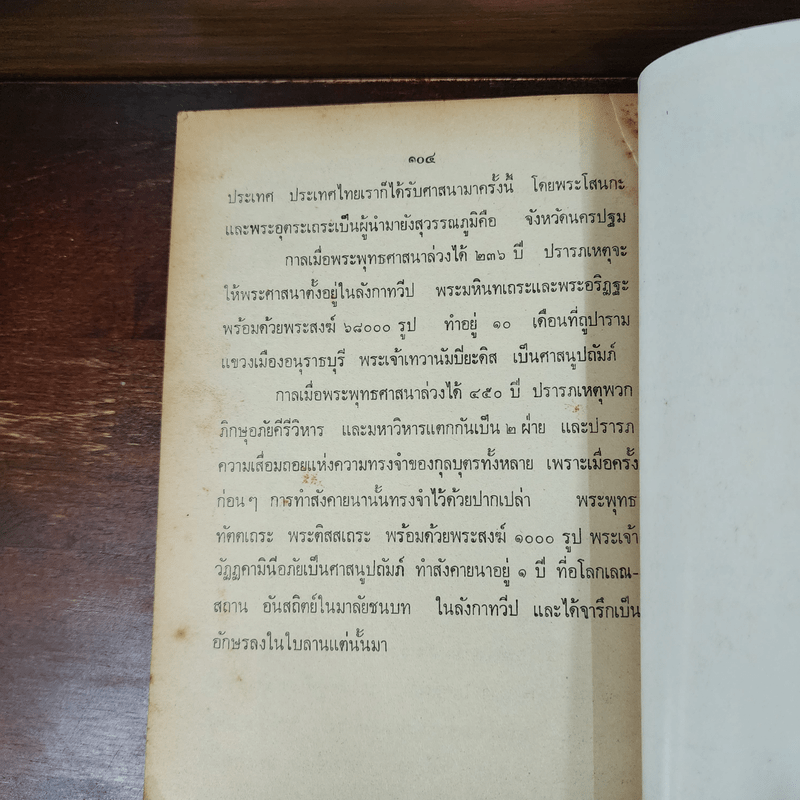 ๑๐๔
ประเทศ ประเทศไทยเราก็ได้รับศาสนามาครั้งนี้ โดยพระโสนกะ
และพระอุตระเถระเป็นผู้นำมายังสุวรรณภูมิคือ จังหวัดนครปฐม
กาลเมื่อพระพุทธศาสนาล่วงได้ ๒๓๖ ปี ปรารภเหตุจะ
ให้พระศาสนาตั้งอยู่ในลังกาทวีป พระมหินทเถระและพระอริฏฐะ
พร้อมด้วยพระสงฆ์ ๖๘๐๐๐ รูป ทำอยู่ ๑๐ เดือนที่ถูปาราม
แขวงเมืองอนุราธบุรี พระเจ้าเทวานัมปิยะดิส เป็นศาสนูปถัมภ์
กาลเมื่อพระพุทธศาสนาล่วงได้ ๔๕๐ ปี ปรารภเหตุพวก
ภิกษุอภัยคีรีวิหาร และมหาวิหารแตกกันเป็น ๒ ฝ่าย และปรารภ
ความเสื่อมถอยแห่งความทรงจำของกุลบุตรทั้งหลาย เพราะเมื่อครั้ง
ก่อนๆ การทำสังคายนานั้นทรงจำไว้ด้วยปากเปล่า พระพุทธ
ทัตตเถระ พระติสสเถระ พร้อมด้วยพระสงฆ์ ๑๐๐๐ รูป พระเจ้า
วัฏฏคามินีอภัยเป็นศาสนูปถัมภ์ ทำสังคายนาอยู่ ๑ ปี ที่อโลกเลณ-
สถาน อันสถิตย์ในมาลัยชนบท ในลังกาทวีป และได้จารึกเป็น
อักษรลงในใบลานแต่นั้นมา